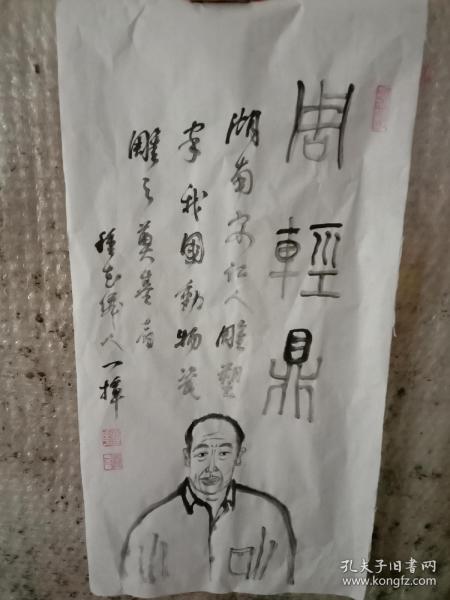 周輕鼎
湖南安仁人雕塑
家我國動物瓷
雕之奠基者
人一揮
孔夫子旧书网
www.kongfz.com